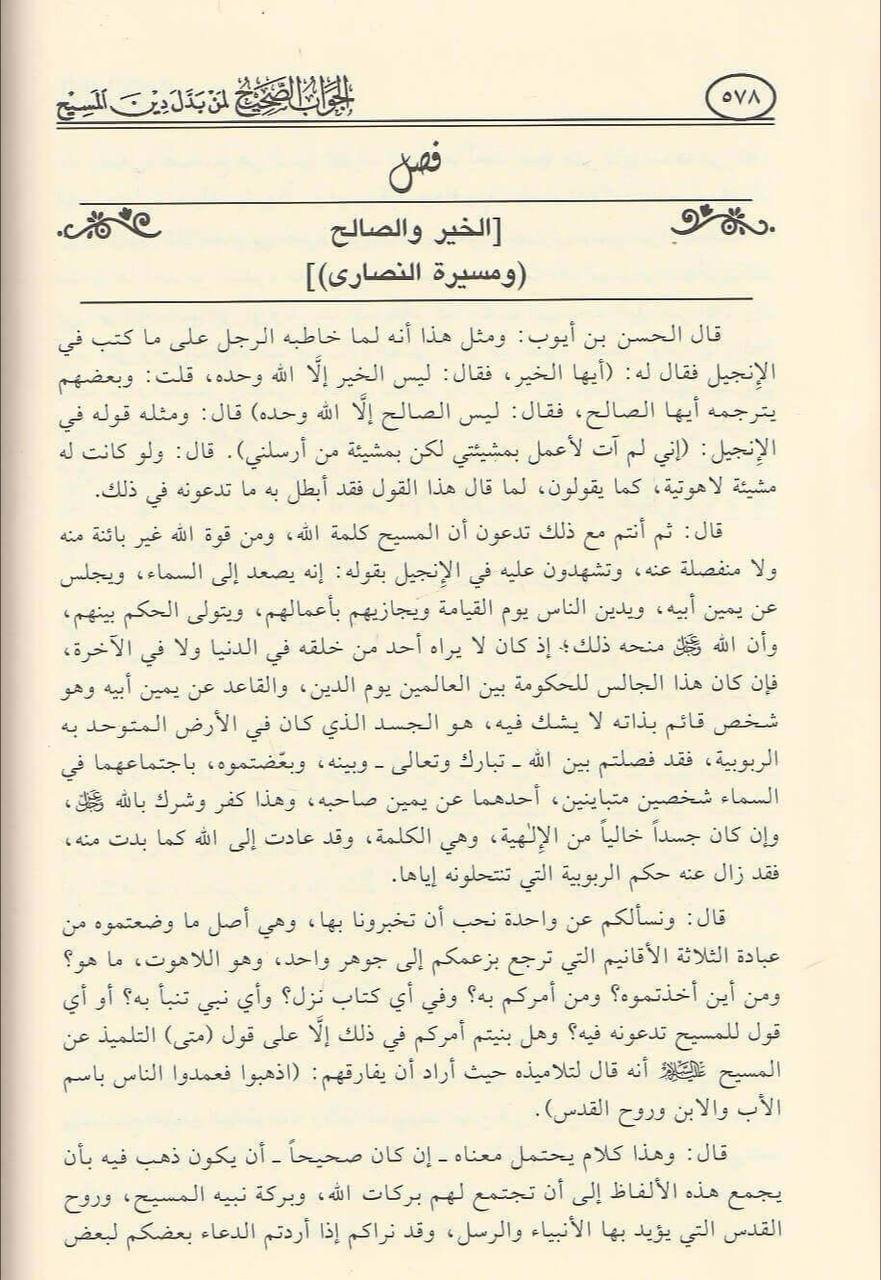 الجواب الصحيح لمن بدل دين المسيح
٥٧٨
فصل
[الخير والصالح
(ومسيرة النصارى)]
قال الحسن بن أيوب: ومثل هذا أنه لما خاطبه الرجل على ما كتب في
الإنجيل فقال له: (أيها الخير، فقال: ليس الخير إلَّا الله وحده، قلت: وبعضهم
يترجمه أيها الصالح، فقال: ليس الصالح إلَّا الله وحده) قال: ومثله قوله في
الإنجيل: (إني لم آت لأعمل بمشيئتي لكن بمشيئة من أرسلني). قال: ولو كانت له
مشيئة لاهوتية، كما يقولون، لما قال هذا القول فقد أبطل به ما تدعونه في ذلك.
قال: ثم أنتم مع ذلك تدعون أن المسيح كلمة الله، ومن قوة الله غير بائنة منه
ولا منفصلة عنه، وتشهدون عليه في الإنجيل بقوله: إنه يصعد إلى السماء، ويجلس
عن يمين أبيه، ويدين الناس يوم القيامة ويجازيهم بأعمالهم، ويتولى الحكم بينهم،
وأن الله عز وجل منحه ذلك؛ إذ كان لا يراه أحد من خلقه في الدنيا ولا في الآخرة،
فإن كان هذا الجالس للحكومة بين العالمين يوم الدين، والقاعد عن يمين أبيه وهو
شخص قائم بذاته لا يشك فيه، هو الجسد الذي كان في الأرض المتوحد به
الربوبية، فقد فصلتم بين الله ـ تبارك وتعالى ـ وبينه، وبعّضتموه، باجتماعهما في
السماء شخصين متباينين، أحدهما عن يمين صاحبه، وهذا كفر وشرك بالله عز وجل،
وإن كان جسداً خالياً من الإلٰهية، وهي الكلمة، وقد عادت إلى الله كما بدت منه،
فقد زال عنه حكم الربوبية التي تنتحلونه إياها.
قال: ونسألكم عن واحدة نحب أن تخبرونا بها، وهي أصل ما وضعتموه من
عبادة الثلاثة الأقانيم التي ترجع بزعمكم إلى جوهر واحد، وهو اللاهوت، ما هو؟
ومن أين أخذتموه؟ ومن أمركم به؟ وفي أي كتاب نزل؟ وأي نبي تنبأ به؟ أو أي
قول للمسيح تدعونه فيه؟ وهل بنيتم أمركم في ذلك إلَّا على قول (متى) التلميذ عن
المسيح عليه السلام أنه قال لتلاميذه حيث أراد أن يفارقهم: (اذهبوا فعمدوا الناس باسم
الأب والابن وروح القدس).
قال: وهذا كلام يحتمل معناه ـ إن كان صحيحاً ـ أن يكون ذهب فيه بأن
يجمع هذه الألفاظ إلى أن تجتمع لهم بركات الله، وبركة نبيه المسيح، وروح
القدس التي يؤيد بها الأنبياء والرسل، وقد نراكم إذا أردتم الدعاء بعضكم لبعض